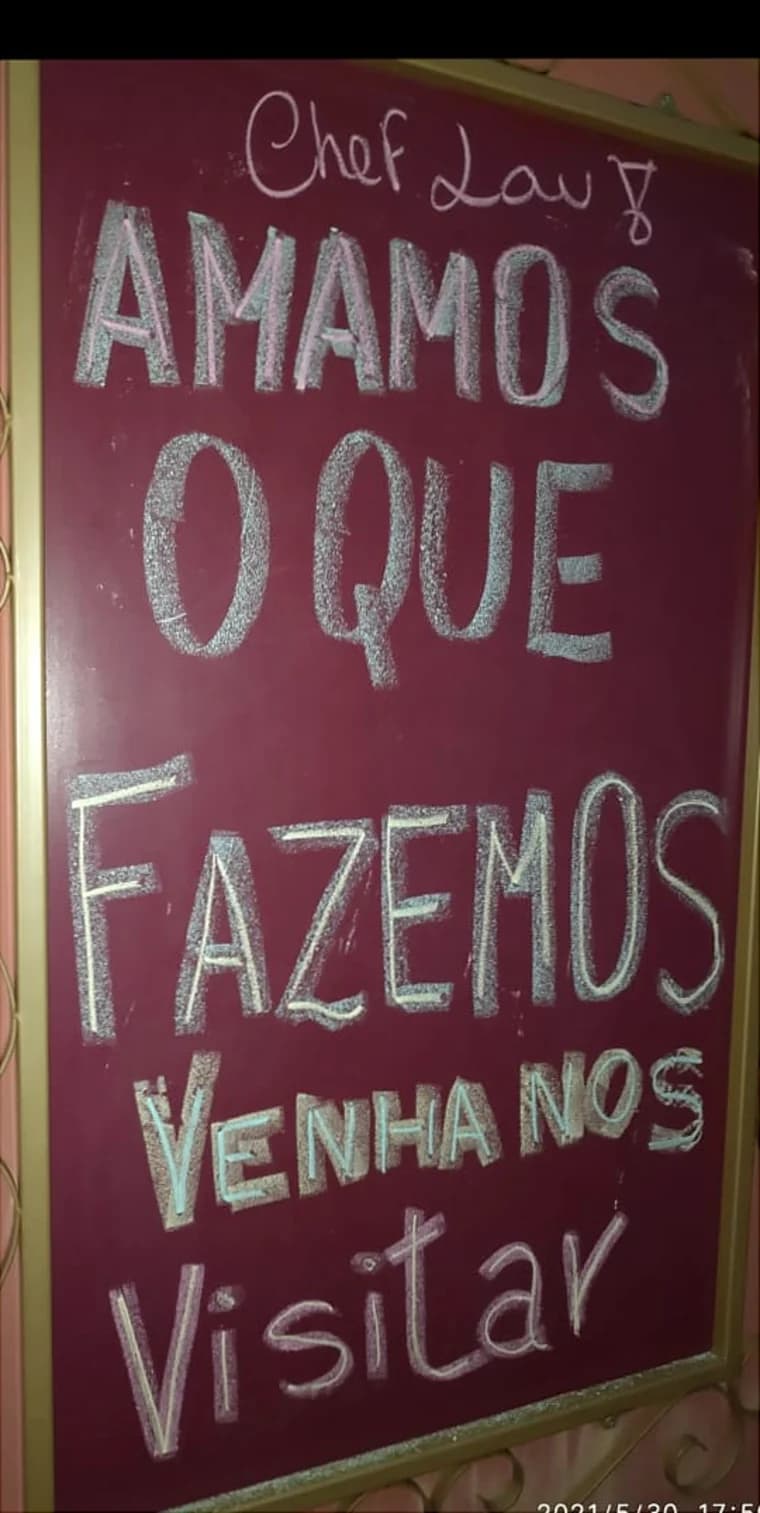 Chef Lau!
AMAMOS
O QUE
FAZEMOS
VENHA NOS
Visitar
2021/5/30 17:5